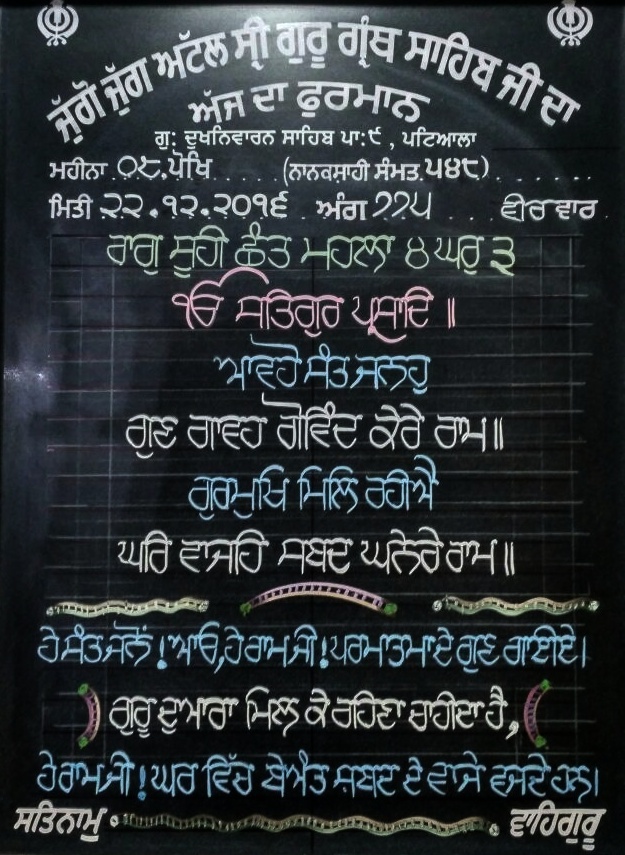 ਜੁੱਗੋ ਜੁੱਗ ਅੱਟੱਲ ਸ੍ਰੀ ਗੁਰੂ ਗ੍ਰੰਥ ਸਾਹਿਬ ਜੀ ਦਾ
ਅੱਜ ਦਾ ਫੁਰਮਾਨ
ਗੁ: ਦੁਖਨਿਵਾਰਨ ਸਾਹਿਬ ਪਾ:੯ , ਪਟਿਆਲਾ
ਮਹੀਨਾ ੦੮.ਪੋਖਿ.....(ਨਾਨਕਸਾਹੀ ਸੰਮਤ.੫੪੮)......
ਮਿਤੀ ੨੨.੧੨.੨੦੧੬ . ਅੰਗ ੭੭੫ ... ਵੀਰਵਾਰ .
ਰਾਗੁ ਸੂਹੀ ਛੰਤ ਮਹਲਾ ੪ ਘਰੁ ੩
ੴ ਸਤਿਗੁਰ ਪ੍ਰਸਾਦਿ ॥
ਆਵਹੋ ਸੰਤ ਜਨਹੁ
ਗੁਣ ਗਾਵਹ ਗੋਵਿੰਦ ਕੇਰੇ ਰਾਮ॥
ਗੁਰਮੁਖਿ ਮਿਲਿ ਰਹੀਐ
ਘਰਿ ਵਾਜਹਿ ਸਬਦ ਘਨੇਰੇ ਰਾਮ॥
ਹੇ ਸੰਤ ਜਨੋਂ !ਆਓ,ਹੇ ਰਾਮ ਜੀ !ਪਰਮਾਤਮਾ ਦੇ ਗੁਣ ਗਾਈਏ।
ਗੁਰੂ ਦੁਆਰਾ ਮਿਲ ਕੇ ਰਹਿਣਾ ਚਾਹੀਦਾ ਹੈ,
ਹੇ ਰਾਮ ਜੀ ! ਘਰ ਵਿੱਚ ਬੇਅੰਤ ਸ਼ਬਦ ਦੇ ਵਾਜੇ ਵਜਦੇ ਹਨ।
ਸਤਿਨਾਮੁ ਵਾਹਿਗੁਰੂ